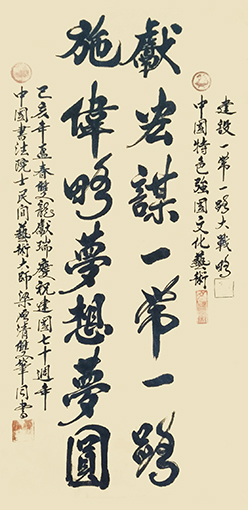 建設一帶一路大戰略
中国特色強国文化藝術
獻宏謀一帶一路
施偉略夢想夢圓
己亥年孟春雙龍獻瑞慶祝建国七十週年
中国書法院士民间藝術大师梁清雙筆同書